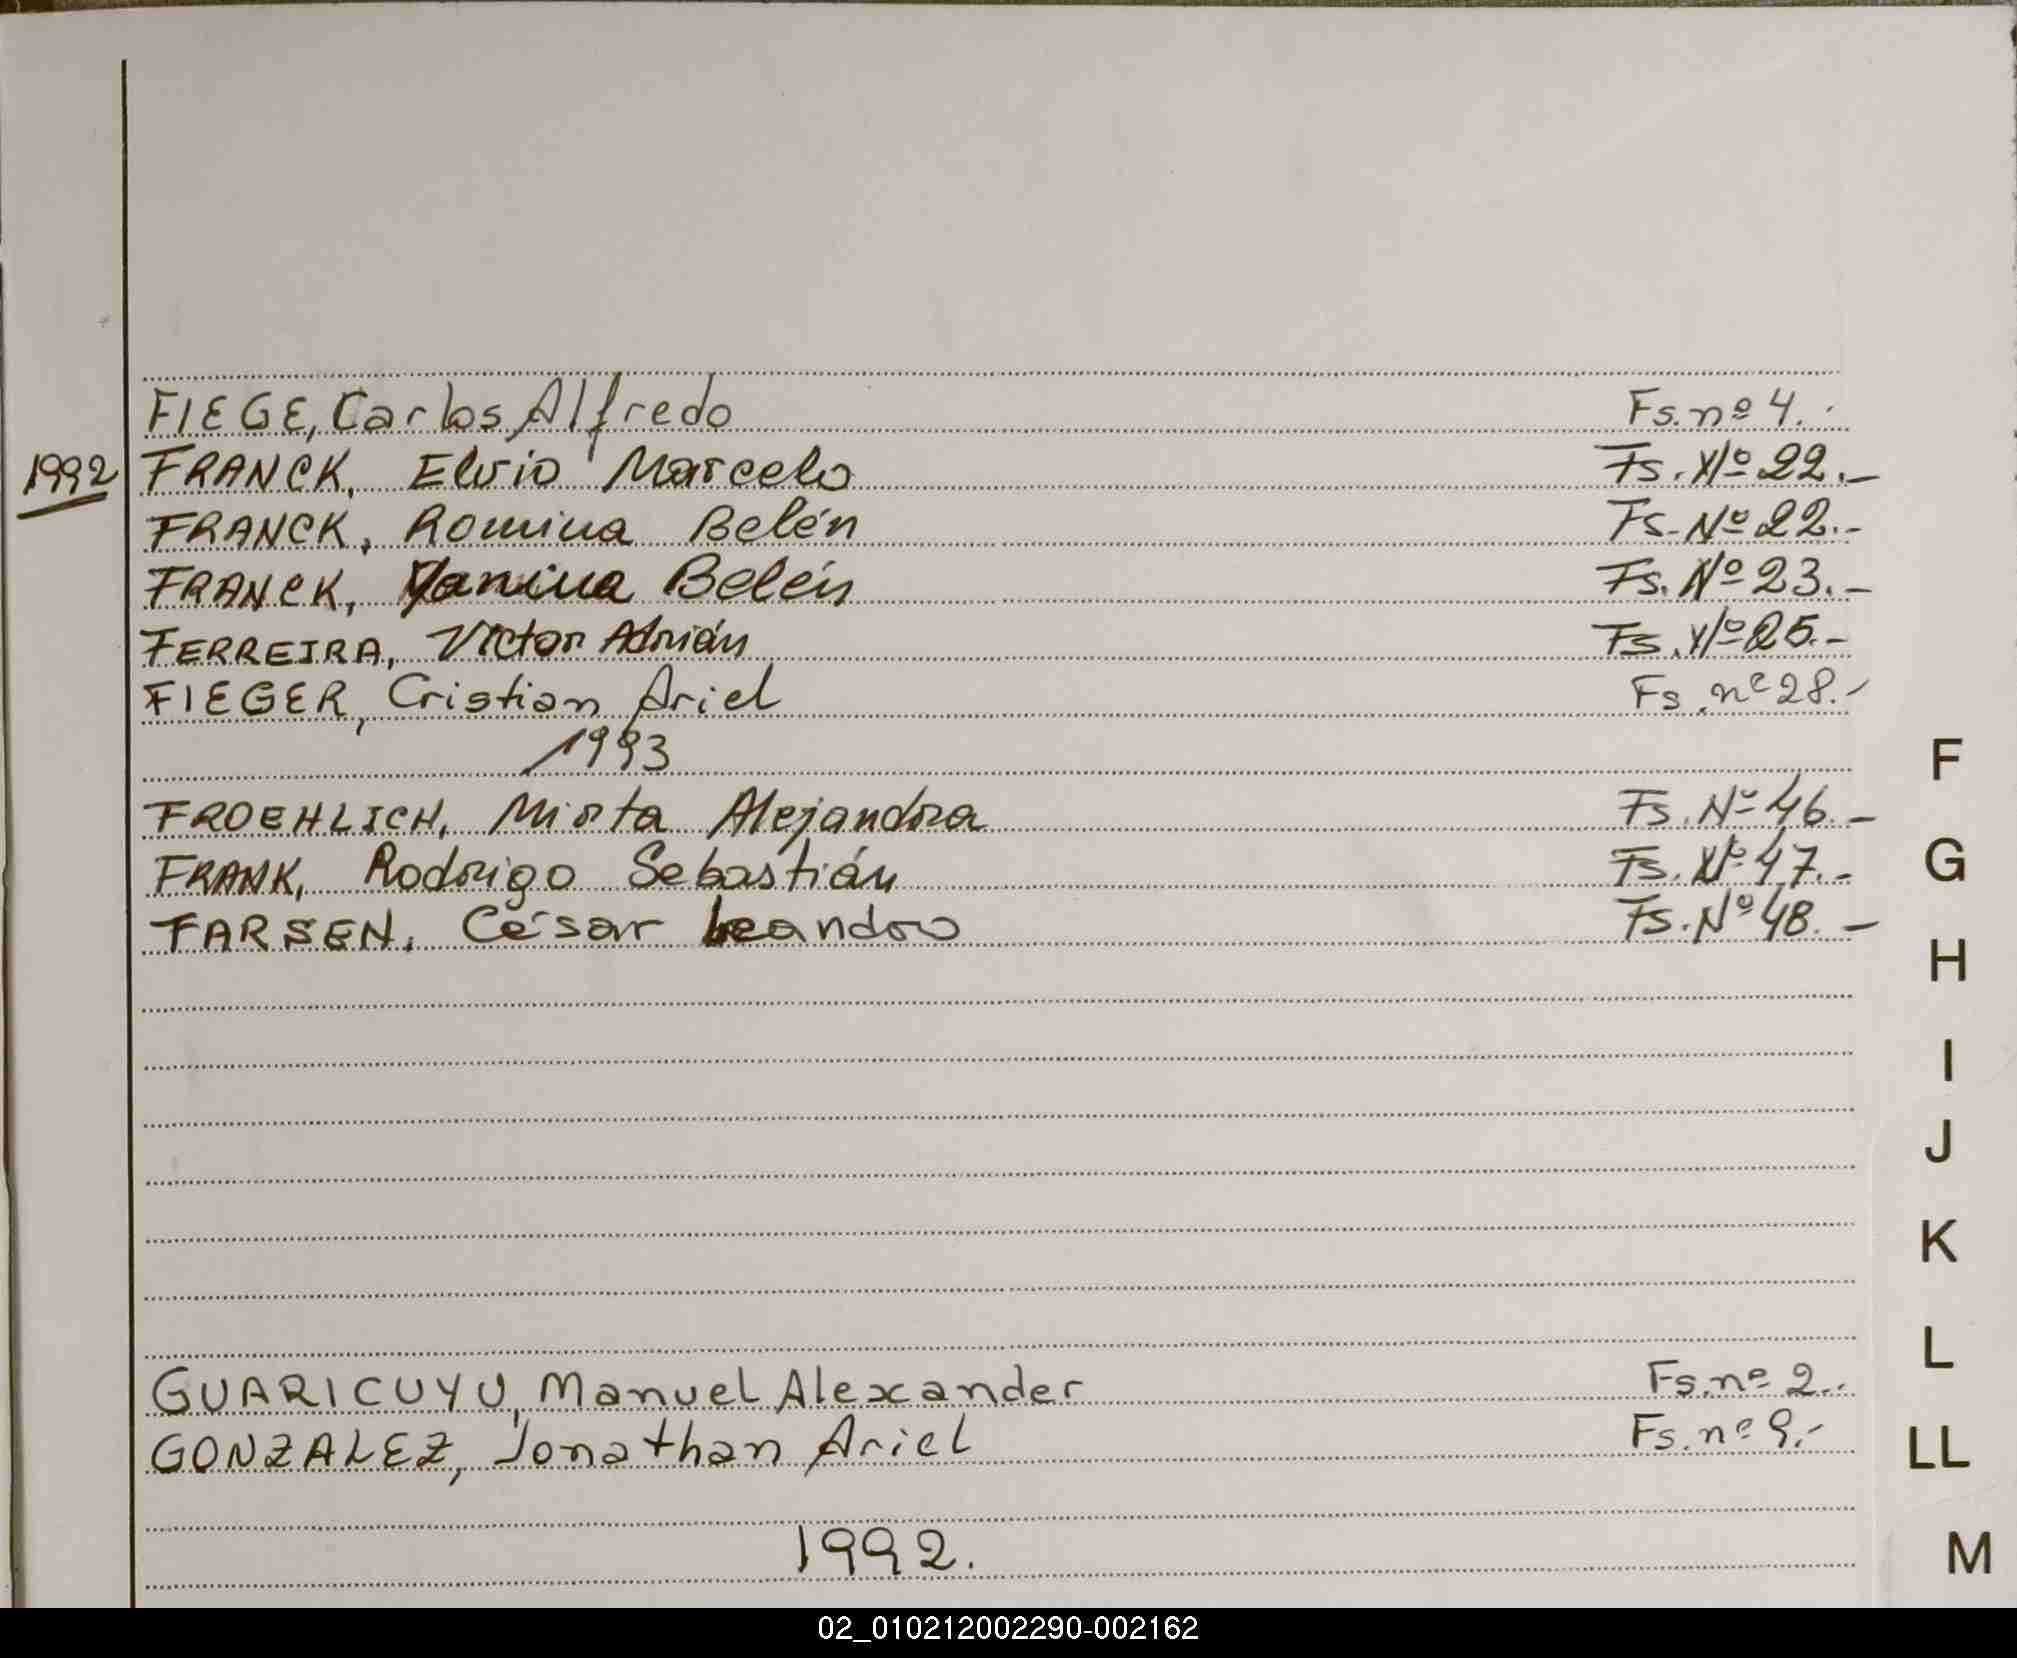 FIEGE, Carlos Alfredo Fs. nº 4.
1992 FRANCK, Elvio Marcelo Fs. Nº 22.-
FRANCK, Romina Belén Fs. Nº 22.-
FRANCK, Yanina Belén Fs. Nº 23.-
FERREIRA, Victor Adrián Fs. Nº 25.-
FIEGER, Cristian Ariel Fs. nº 28.-
1993
FROEHLICH, Mirta Alejandra Fs. Nº 46.-
FRANK, Rodrigo Sebastián Fs. Nº 47.-
FARSEN, César Leandro Fs. Nº 48.-
GUARICUYU, Manuel Alexander Fs. nº 2..
GONZALEZ, Jonathan Ariel Fs. nº 9.-
1992.
F
G
H
I
J
K
L
LL
M
02_010212002290-002162